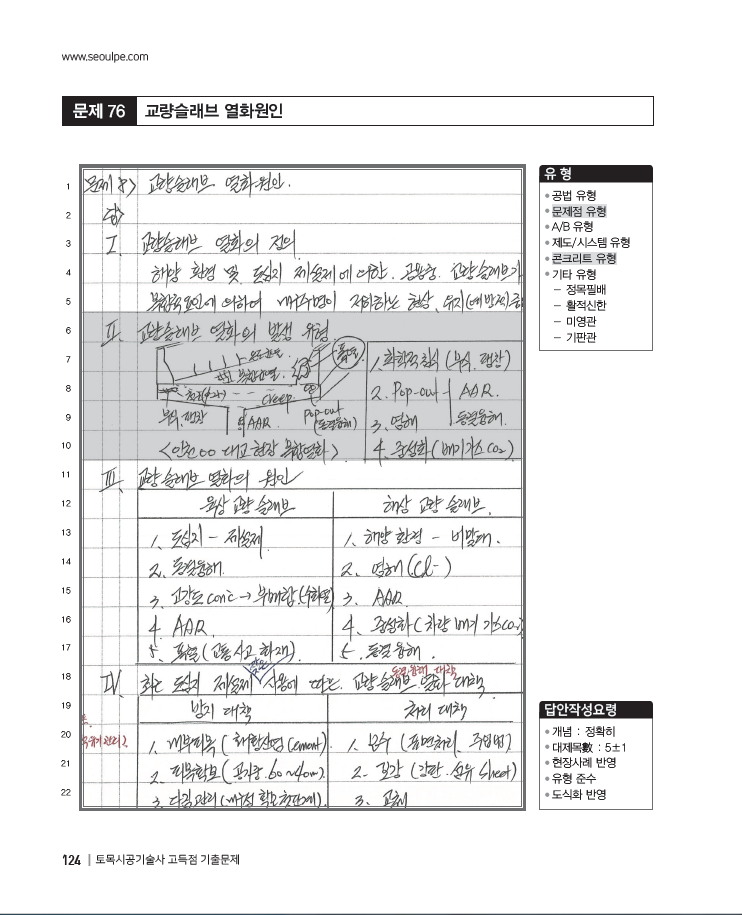 www.seoulpe.com
문제 76 교량슬래브 열화원인
1 문제 8) 교량슬래브 열화원인.
2 답)
3 I. 교량슬래브 열화의 정의
4 해양 환경 및 도심지 제설제에 의한 공용중 교량슬래브가
5 복합적 요인에 의하여 내구수명이 저하하는 현상, 유지(예방적)
6 II. 교량슬래브 열화의 발생 유형
7 폭열 1. 화학적 침식 (부식, 팽창)
8 creep 2. Pop-out AAR.
9 부식, 팽창 AAR Pop-out (동결융해) 3. 염해 동결융해.
10 <인천 00 대교 현장 복합열화> 4. 중성화 (배기가스 CO₂)
11 III. 교량슬래브 열화의 원인
12 육상 교량 슬래브 해상 교량 슬래브.
13 1. 도심지 - 제설제 1. 해양 환경 - 비말대.
14 2. 동결융해. 2. 염해 (Cl-)
15 3. 고강도 con'c → 부배합 (수화열) 3. AAR.
16 4. AAR. 4. 중성화 (차량 배기가스 CO₂)
17 5. 폭열 (교통사고 화재) 5. 동결융해.
18 IV. 최근 도심지 제설제 사용에 따른 교량슬래브 열화 대책
동결융해 대책
19 방지 대책 처리 대책
20 1. 내부피복 (cement) 1. 보수 (표면처리, 주입법)
21 2. 피복확보 (공칭중. 60~80mm) 2. 보강 (강판. 섬유 sheet)
22 3. 다짐관리 3. 교체
유 형
• 공법 유형
• 문제점 유형
• A/B 유형
• 제도/시스템 유형
• 콘크리트 유형
• 기타 유형
– 정목필배
– 활적신한
– 미영관
– 기판관
답안작성요령
• 개념 : 정확히
• 대제목數 : 5±1
• 현장사례 반영
• 유형 준수
• 도식화 반영
124 | 토목시공기술사 고득점 기출문제